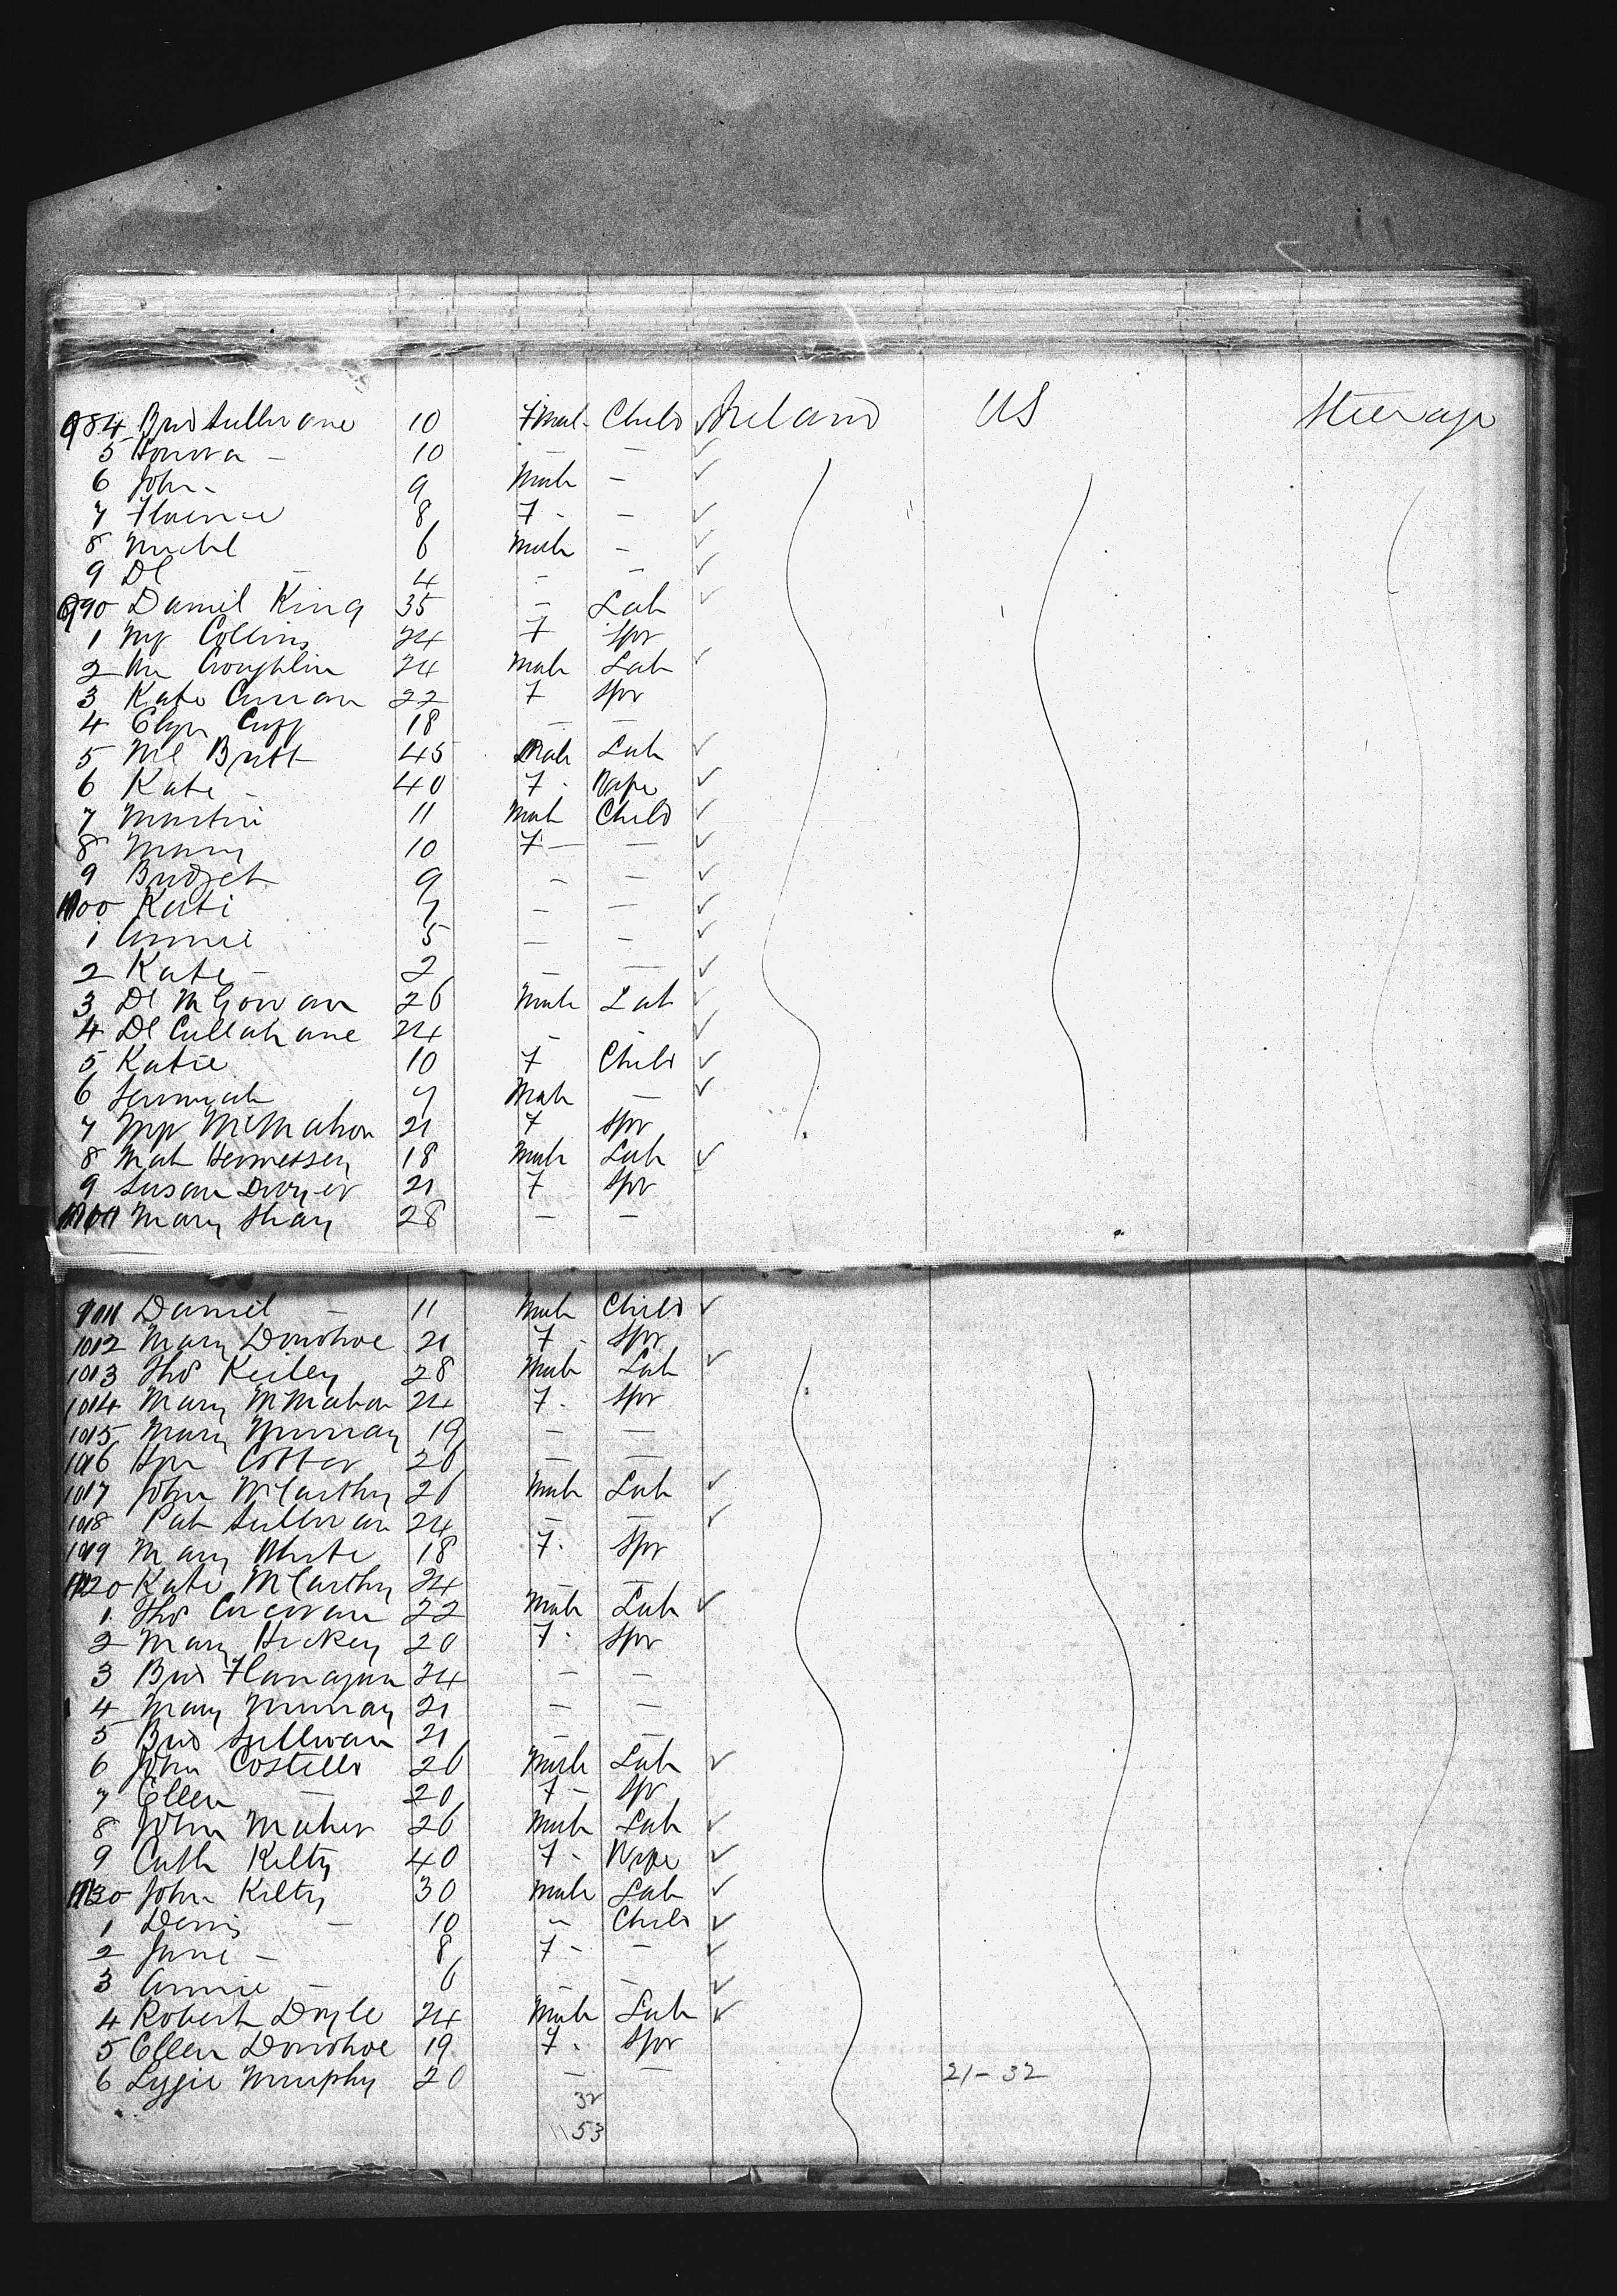 984 Brid Sullivane 10 Fmal. Child Ireland US Steerage
5 Honora - 10 - -
6 John - 9 Male -
7 Florence 8 F - -
8 Michl 6 Male -
9 Dl - 4 - -
990 Daniel King 35 - Lab
1 Mgt Collins 24 F Spr
2 Wm Coughlin 24 Male Lab
3 Kate Curran 22 F Spr
4 Elzn Cuff 18 - -
5 Ml Britt 45 Male Lab
6 Kate - 40 F - Wife
7 Martin 11 Male Child
8 Mary 10 F - -
9 Bridget 9 - -
1000 Kate 7 - -
1 Annie 5 - -
2 Kate - 2 - -
3 Dl McGowan 26 Male Lab
4 Dl Callahane 24 - -
5 Katie 10 F Child
6 Jeremiah 7 Male -
7 Mgt McMahon 21 F Spr
8 Mat Hennessey 18 Male Lab
9 Susan Dwyer 21 F Spr
Mary Shay 28 - -
1011 Daniel - 11 Male Child
1012 Mary Donohoe 21 F - Spr
1013 Thos Keiley 28 Male Lab
1014 Mary McMahon 24 F - Spr
1015 Mary Murray 19 - -
1016 Cotter 26 - -
1017 John McCarthy 26 Male Lab
1018 Pat Sullivan 24 - -
1019 Mary White 18 F - Spr
1020 Kate McCarthy 24 - -
1 Thos Corcoran 22 Male Lab
2 Mary Hickey 20 F - Spr
3 Brid Flanagan 24 - -
4 Mary Murray 21 - -
5 Brid Sullivan 21 - -
6 John Costello 26 Male Lab
7 Ellen - 20 F - Spr
8 John Maher 26 Male Lab
9 Cath Kilty 40 F - Wife
1030 John Kilty 30 Male Lab
1 Denis - 10 - Child
2 Jane - 8 F - -
3 Annie - 6 - -
4 Robert Doyle 24 Male Lab
5 Ellen Donohoe 19 F - Spr
6 Lizzie Murphy 20 - - 21-32
32
53